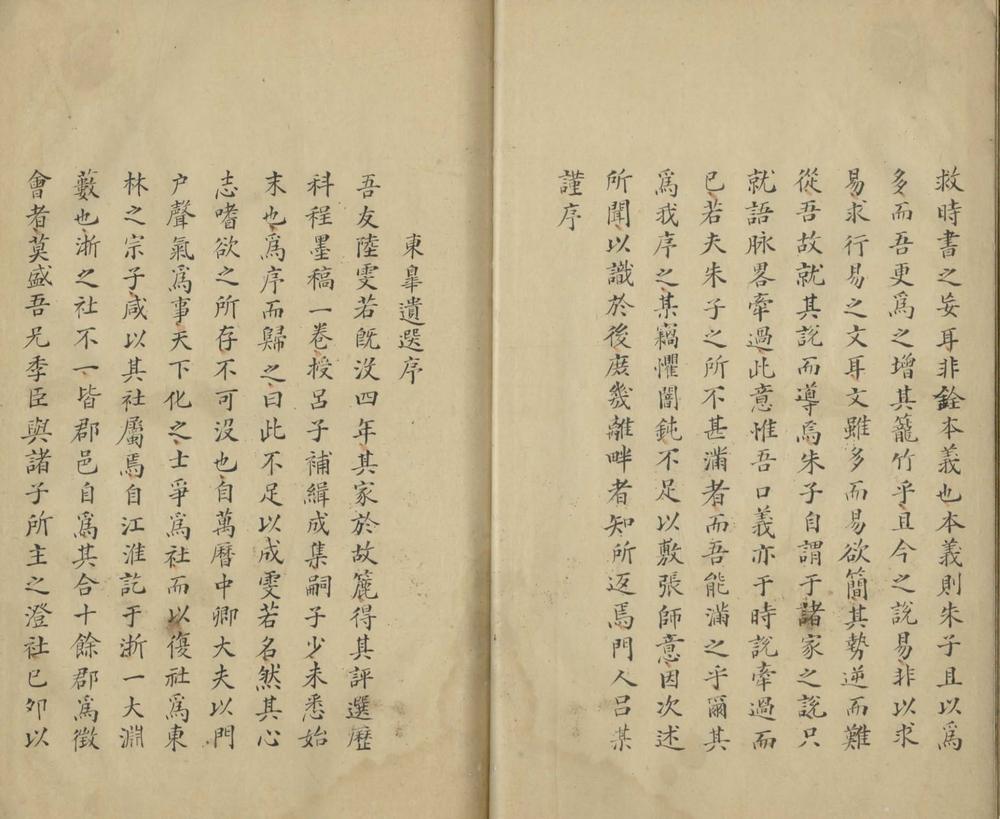 救時書之妄耳非銓本義也本義則朱子且以爲
多而吾更爲之增其籠竹乎且今之說易非以求
易求行易之文耳文雖多而易欲簡其勢逆而難
從吾故就其說而導焉朱子自謂于諸家之說只
就語脉畧牽過此意惟吾口義亦于時說牽過而
已若夫朱子之所不甚滿者而吾能滿之乎爾其
爲我序之某竊懼闇鈍不足以敷張師意因次述
所聞以識於後庶幾離畔者知所返焉門人呂某
謹序
東臯遺選序
吾友陸雯若旣沒四年其家於故簏得其評選歷
科程墨稿一卷授呂子補緝成集嗣子少未悉始
末也爲序而歸之曰此不足以成雯若名然其心
志嗜欲之所存不可沒也自萬曆中卿大夫以門
户聲氣爲事天下化之士爭爲社而以復社爲東
林之宗子咸以其社屬焉自江淮訖于浙一大淵
藪也浙之社不一皆郡邑自爲其合十餘郡爲徵
會者莫盛吾兄季臣與諸子所主之澄社已夘以